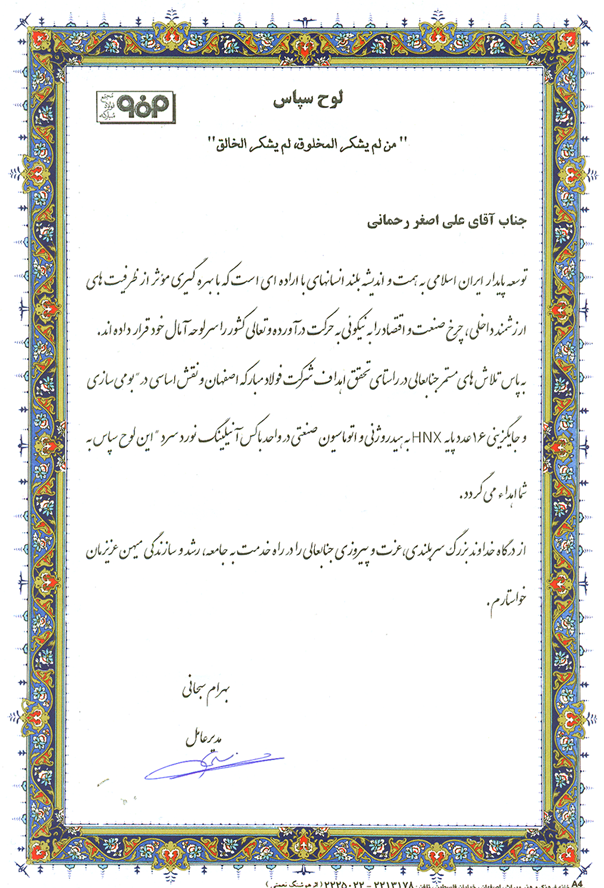 لوح سپاس
مجتمع فولاد مبارکه
"من لم یشکر المخلوق، لم یشکر الخالق"
جناب آقای علی اصغر رحمانی
توسعه پایدار ایران اسلامی به همت و اندیشه بلند انسانهای با اراده ای است که با بهره گیری مؤثر از ظرفیت های
ارزشمند داخلی، چرخ صنعت و اقتصاد را به نیکوئی به حرکت درآورده و تعالی کشور را سرلوحه آمال خود قرار داده اند.
به پاس تلاش های مستمر جنابعالی در راستای تحقق اهداف شرکت فولاد مبارکه اصفهان و نقش اساسی در "بومی سازی
و جایگزینی ۱۶ عدد پایه HNX به هیدروژنی و اتوماسیون صنعتی در واحد باکس آنیلینگ نورد سرد" این لوح سپاس به
شما اهداء می گردد.
از درگاه خداوند بزرگ سربلندی، عزت و پیروزی جنابعالی را در راه خدمت به جامعه، رشد و سازندگی میهن عزیزمان
خواستارم.
بهرام سبحانی
مدیرعامل
A4 اصفهان، خیابان فلسطین تلفن: ۲۲۱۳۱۷۸ - ۲۲۲۵۰۲۲ (از هوشنگ نعمتی)